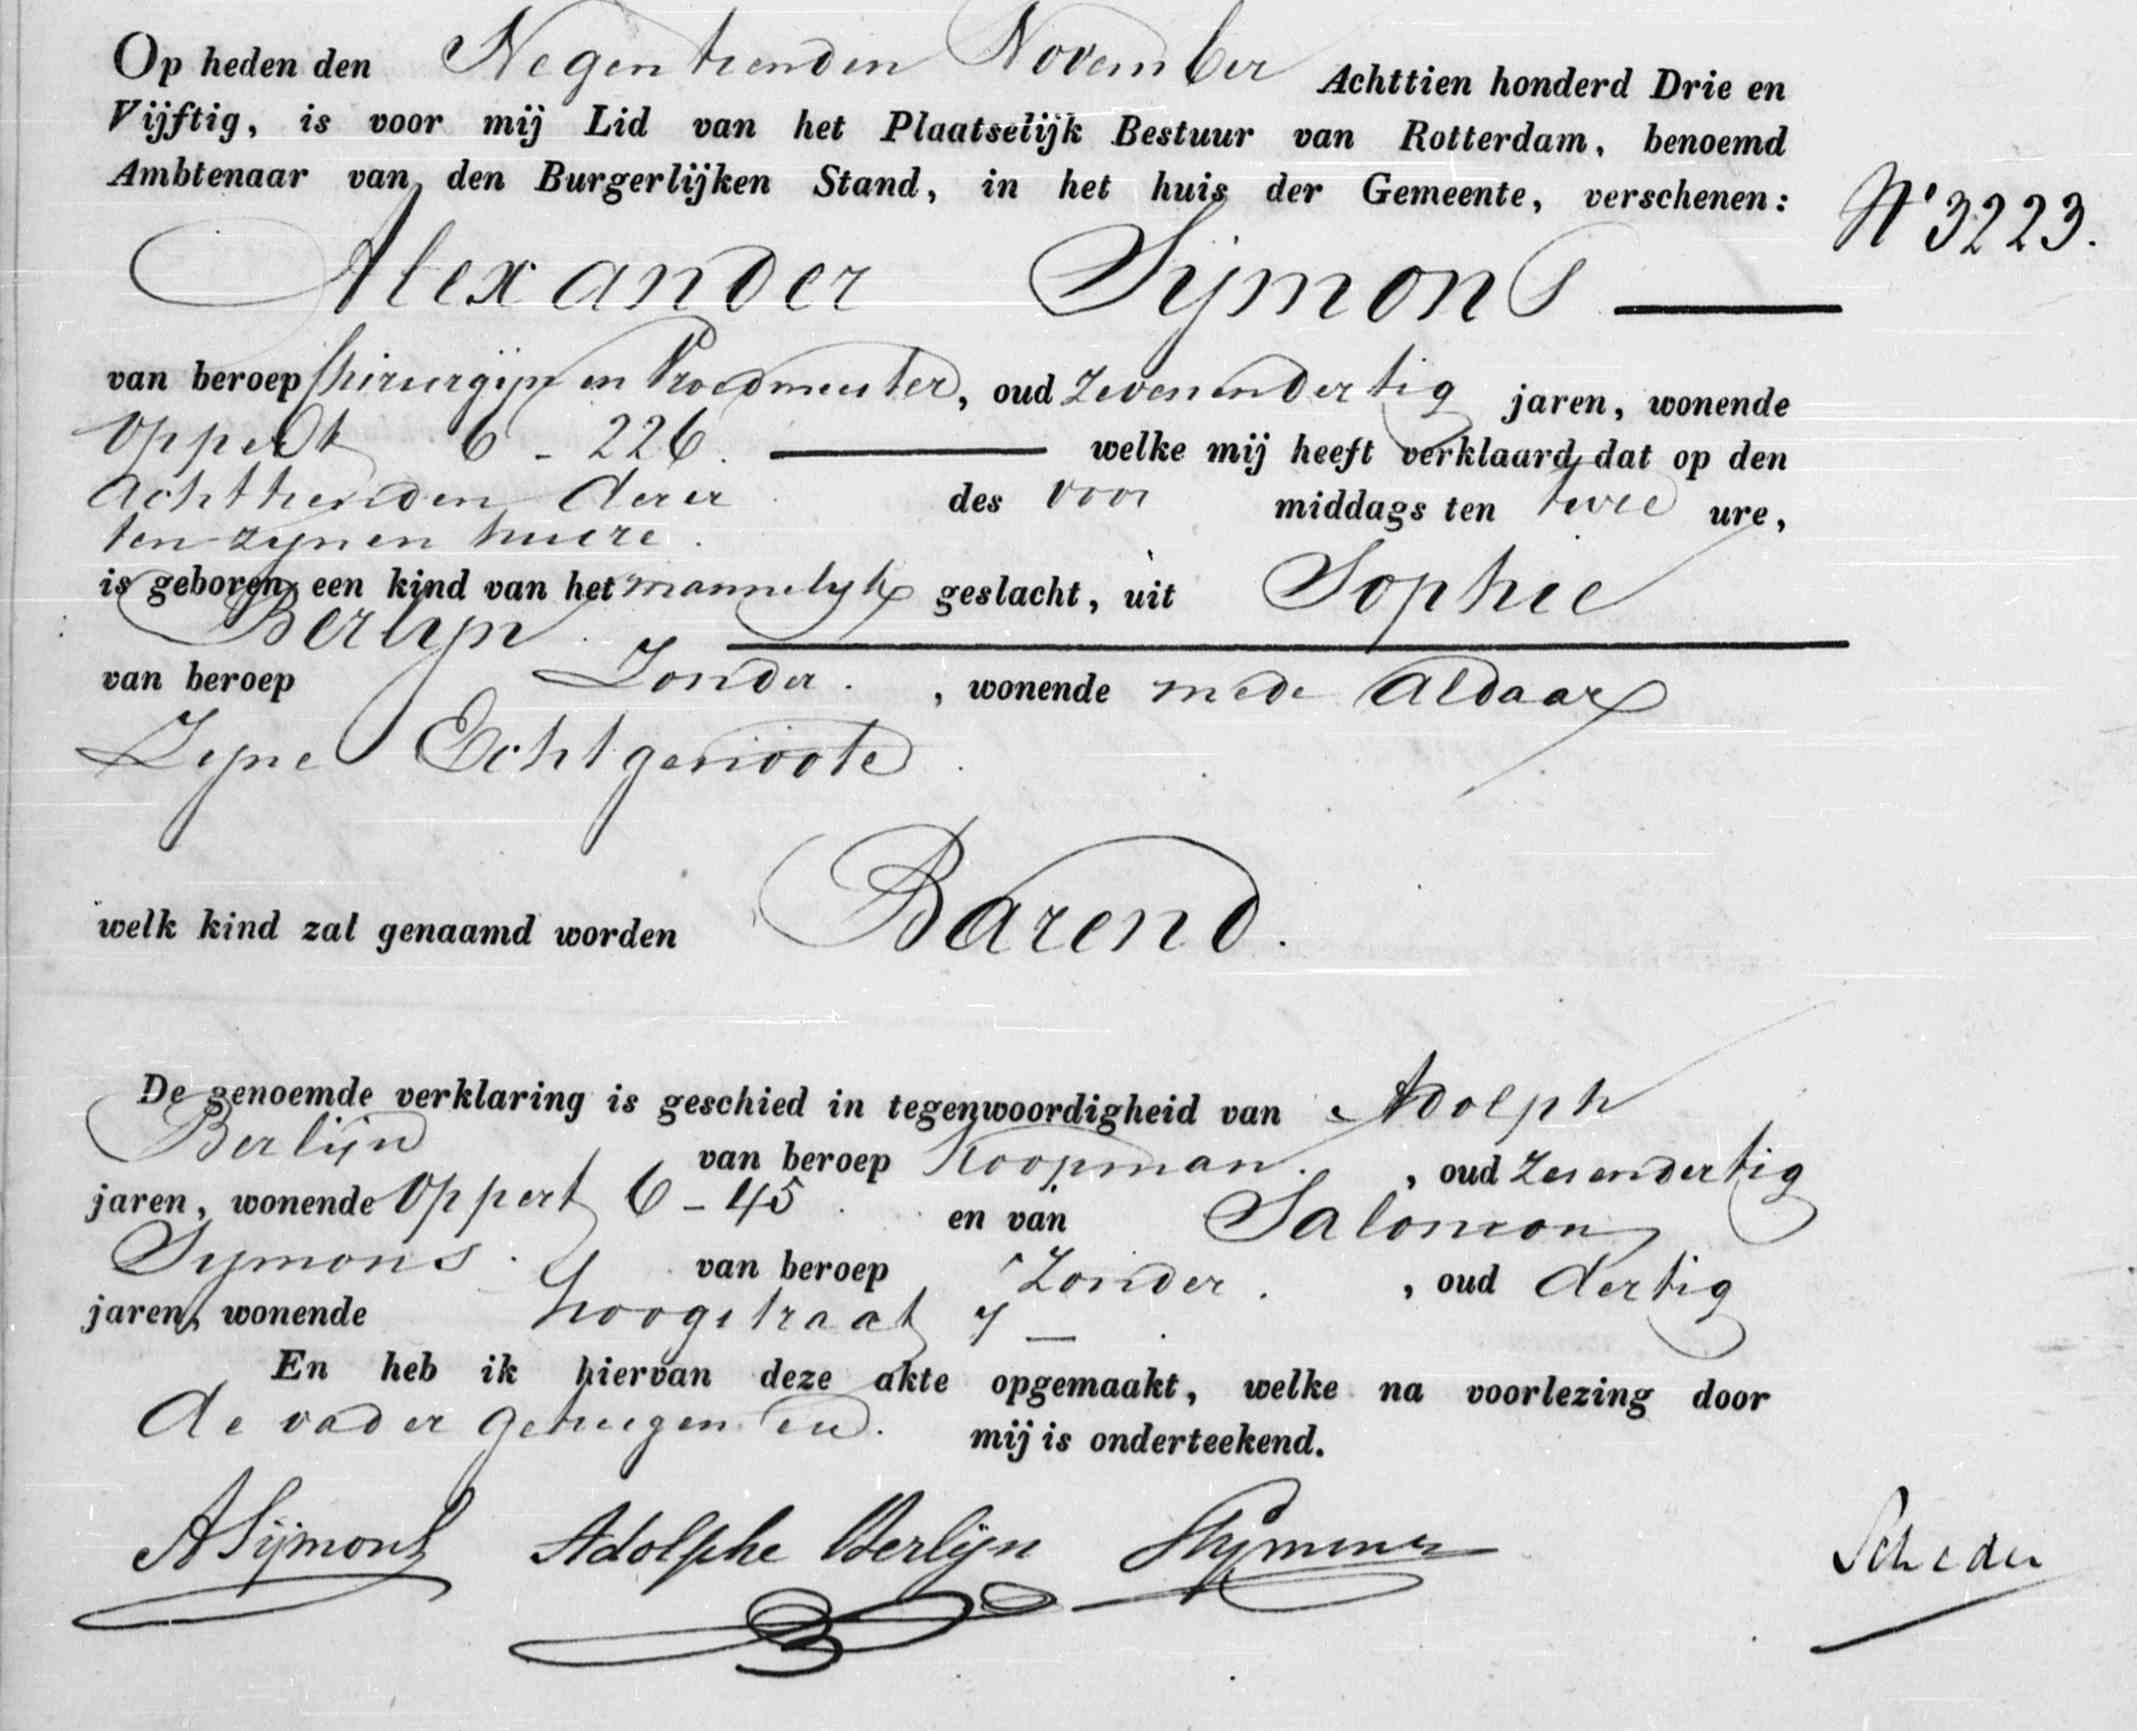 Op heden den Negentienden November Achttien honderd Drie en
Vijftig, is voor mij Lid van het Plaatselijk Bestuur van Rotterdam, benoemd
Ambtenaar van den Burgerlijken Stand, in het huis der Gemeente, verschenen:
N° 3223.
Alexander Sijmons
van beroep Chirurgijn en Vroedmeester, oud zevenendertig jaren, wonende
Oppert 6 - 226. welke mij heeft verklaard, dat op den
achttienden dezer des voor middags ten twee ure,
ten zijnen huize.
is geboren een kind van het mannelijk geslacht, uit Sophie
Berlijn
van beroep Zonder. , wonende mede aldaar
Zijne Echtgenoote
welk kind zal genaamd worden Barend.
De genoemde verklaring is geschied in tegenwoordigheid van Adolph
Berlijn van beroep Koopman. , oud zesendertig
jaren, wonende Oppert 6 - 45 en van Salomon
Sijmons. van beroep Zonder. , oud dertig
jaren, wonende Hoogstraat 7 —
En heb ik hiervan deze akte opgemaakt, welke na voorlezing door
de vader getuigen en. mij is onderteekend.
ASijmons Adolphe Berlijn SSijmons Scheder